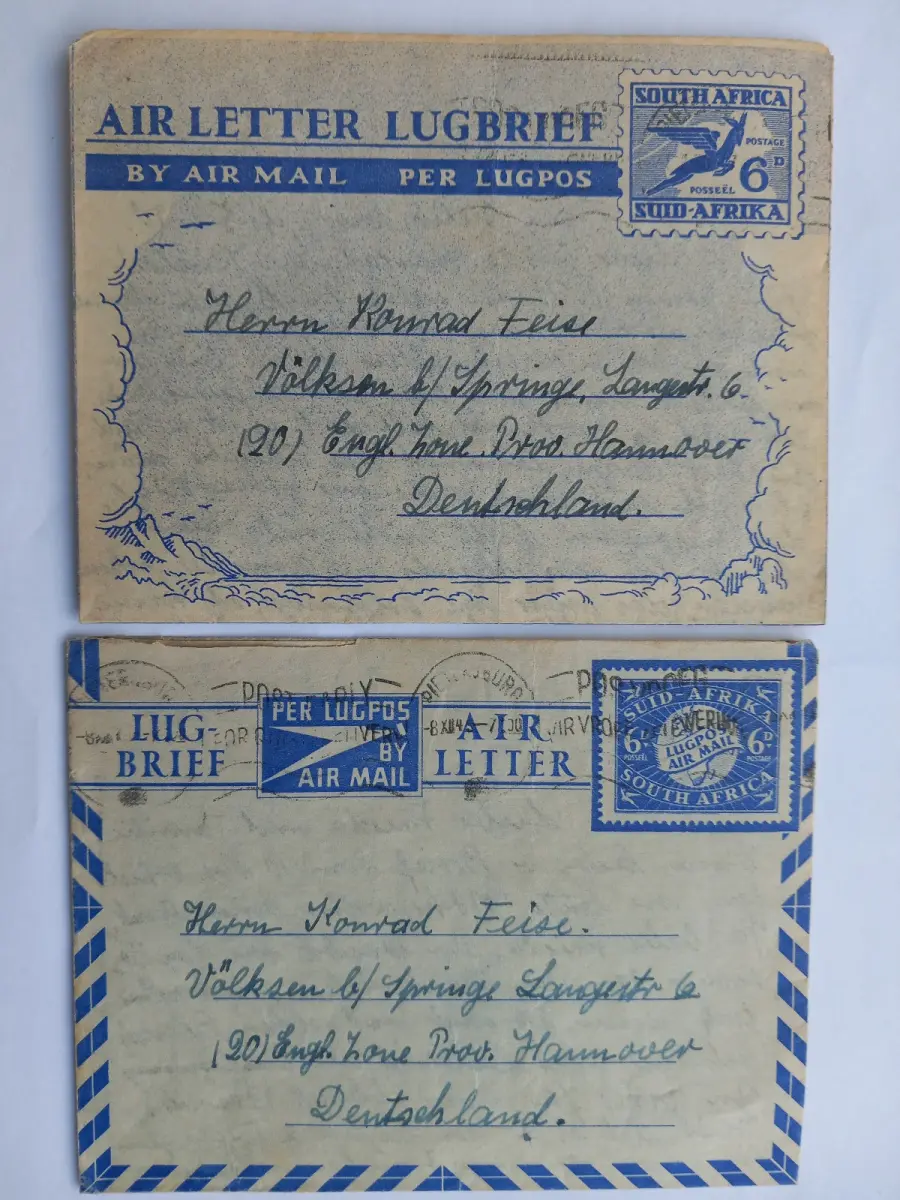 AIR LETTER LUGBRIEF
BY AIR MAIL PER LUGPOS
SOUTH AFRICA
POSTAGE
POSSEËL 6D
SUID-AFRIKA
Herrn Konrad Feise
Völksen b/ Springe, Langestr. 6
(20) Engl. Zone. Prov. Hannover
Deutschland.
POST EARLY
LUG-
BRIEF
PER LUGPOS
BY
AIR MAIL
AIR
LETTER
8 XII 4
SUID-AFRIKA
6D 6D
POSSEËL POSTAGE
LUGPOS
AIR MAIL
SOUTH AFRICA
Herrn Konrad Feise.
Völksen b/ Springe Langestr 6
(20) Engl. Zone Prov. Hannover
Deutschland.